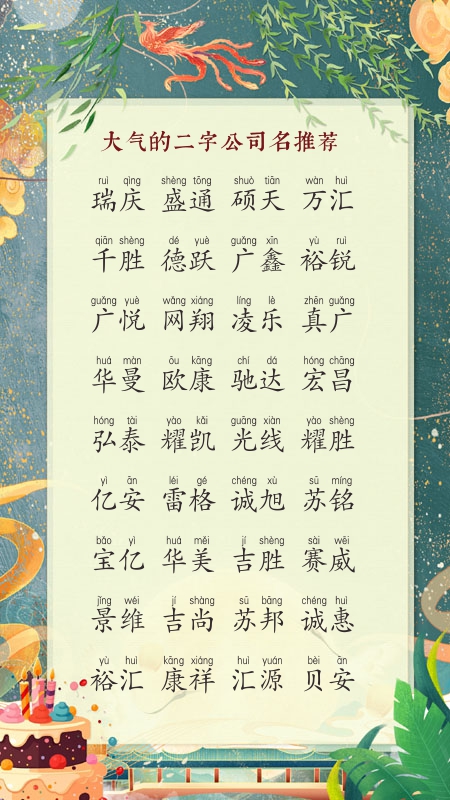 大气的二字公司名推荐
ruì qìng shèng tōng shuò tiān wàn huì
瑞庆 盛通 硕天 万汇
qiān shèng dé yuè guǎng xīn yù ruì
千胜 德跃 广鑫 裕锐
guǎng yuè wǎng xiáng líng lè zhēn guǎng
广悦 网翔 凌乐 真广
huá màn ōu kāng chí dá hóng chāng
华曼 欧康 驰达 宏昌
hóng tài yào kǎi guāng xiàn yào shèng
弘泰 耀凯 光线 耀胜
yì ān léi gé chéng xù sū míng
亿安 雷格 诚旭 苏铭
bǎo yì huá měi jí shèng sài wēi
宝亿 华美 吉胜 赛威
jǐng wéi jí shàng sū bāng chéng huì
景维 吉尚 苏邦 诚惠
yù huì kāng xiáng huì yuán bèi ān
裕汇 康祥 汇源 贝安